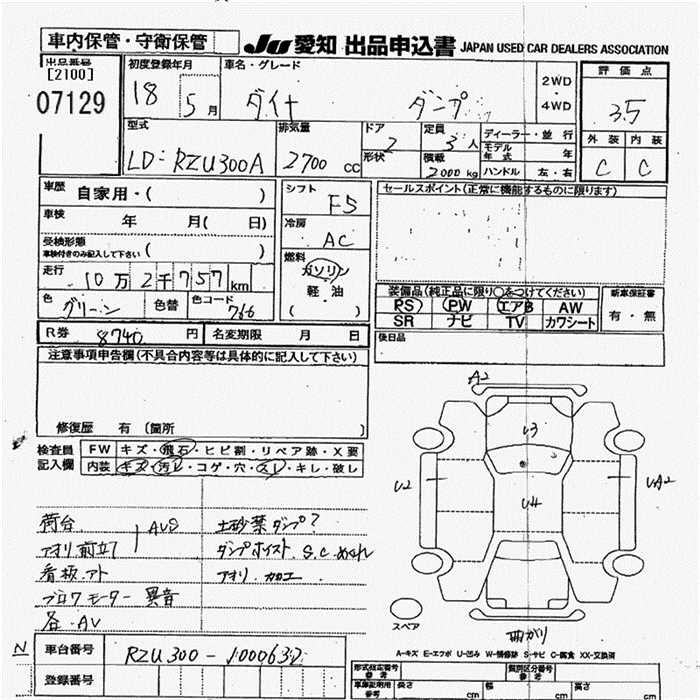 車内保管・守衛保管
JU 愛知 出品申込書 JAPAN USED CAR DEALERS ASSOCIATION
出品番号
[2100]
07129
初度登録年月
18 5月
車名・グレード
ダイナ ダンプ
2WD
・
4WD
評価点
3.5
外装 内装
C C
型式
LD-RZU300A
排気量
2700 cc
ドア
2
形状
定員
3人
積載
2000 kg
ディーラー・並行
モデル年式 年
ハンドル 左・右
車歴 自家用・( )
車検 年 月( 日)
受検形態
車検付きのみ記入して下さい ( )
走行
10万2千757km
色
グリーン
色替
色コード
766
シフト
F5
冷房
AC
燃料
ガソリン
軽・油
( )
セールスポイント(正常に機能するものに限ります)
装備品(純正品に限り○をつけてください)
PS PW エアB AW
SR ナビ TV カワシート
新車保証書
有・無
後日品
R券 8740 円
名変期限 月 日
注意事項申告欄(不具合内容等は具体的に記入して下さい)
修復歴 有 (箇所 )
検査員
記入欄
FW キズ・飛石・ヒビ割・リペア跡・X要
内装 キズ・汚レ・コゲ・穴・スレ・キレ・破レ
荷台
アオリ.前立て AUS
看板.アト
ブロワモーター 異音
各.AV
土砂葉ダンプ?
ダンプホイスト S.C めくれ
アオリ カロエ
A2
U3
U2
U4
UA2
スペア
曲がり
A-キズ E-エクボ U-凹み W-補修跡 S-サビ C-腐食 XX-交換済
N
車台番号
RZU300-
登録番号
形式指定番号
参考
類別区分番号
車庫証明用
参考
長さ cm
幅 cm
高さ cm